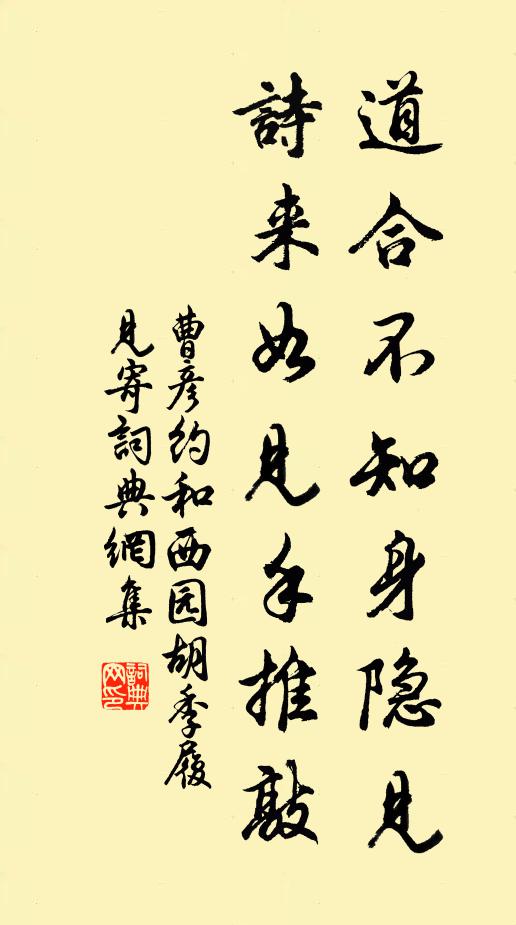 道合不知身隐见
詩来如見手推敲
曹彦约和西园胡季履
見寄詞典網集
詞典网印